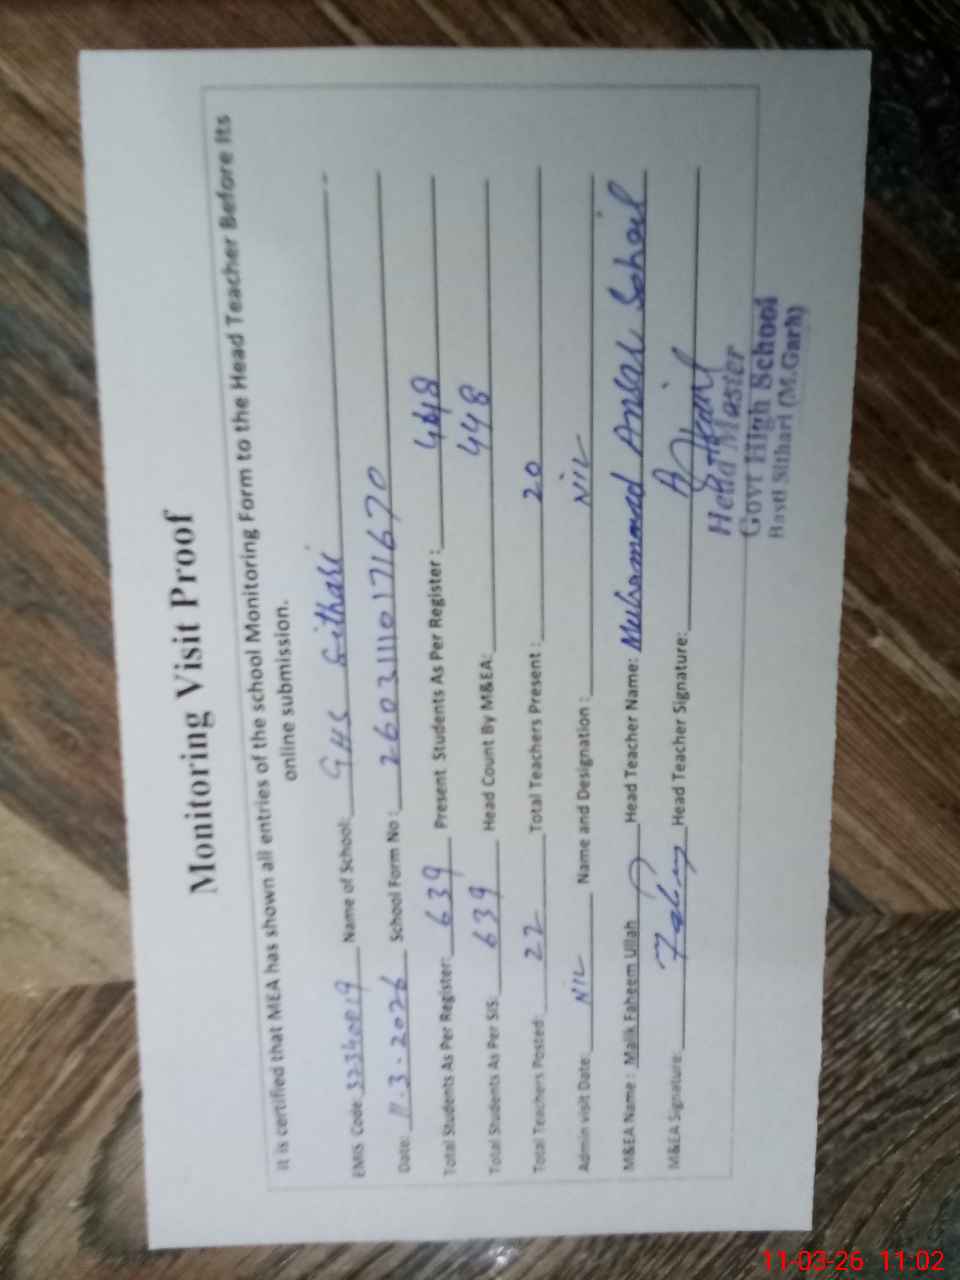 Monitoring Visit Proof
It is certified that MEA has shown all entries of the school Monitoring Form to the Head Teacher Before Its
online submission.
EMIS Code 32340019 Name of School: GHS Sithari
Date: 11.3.2026 School Form No: 26031110171670
Total Students As Per Register: 639 Present Students As Per Register: 448
Total Students As Per SIS: 639 Head Count By M&EA: 448
Total Teachers Posted: 22 Total Teachers Present: 20
Admin visit Date: NIL Name and Designation: NIL
M&EA Name: Malik Faheem Ullah Head Teacher Name: Muhammad Ansar Sohail
M&EA Signature: Fahim Head Teacher Signature:
Head Master
Govt High School
Basti Sithari (M.Garh)
11-03-26 11:02